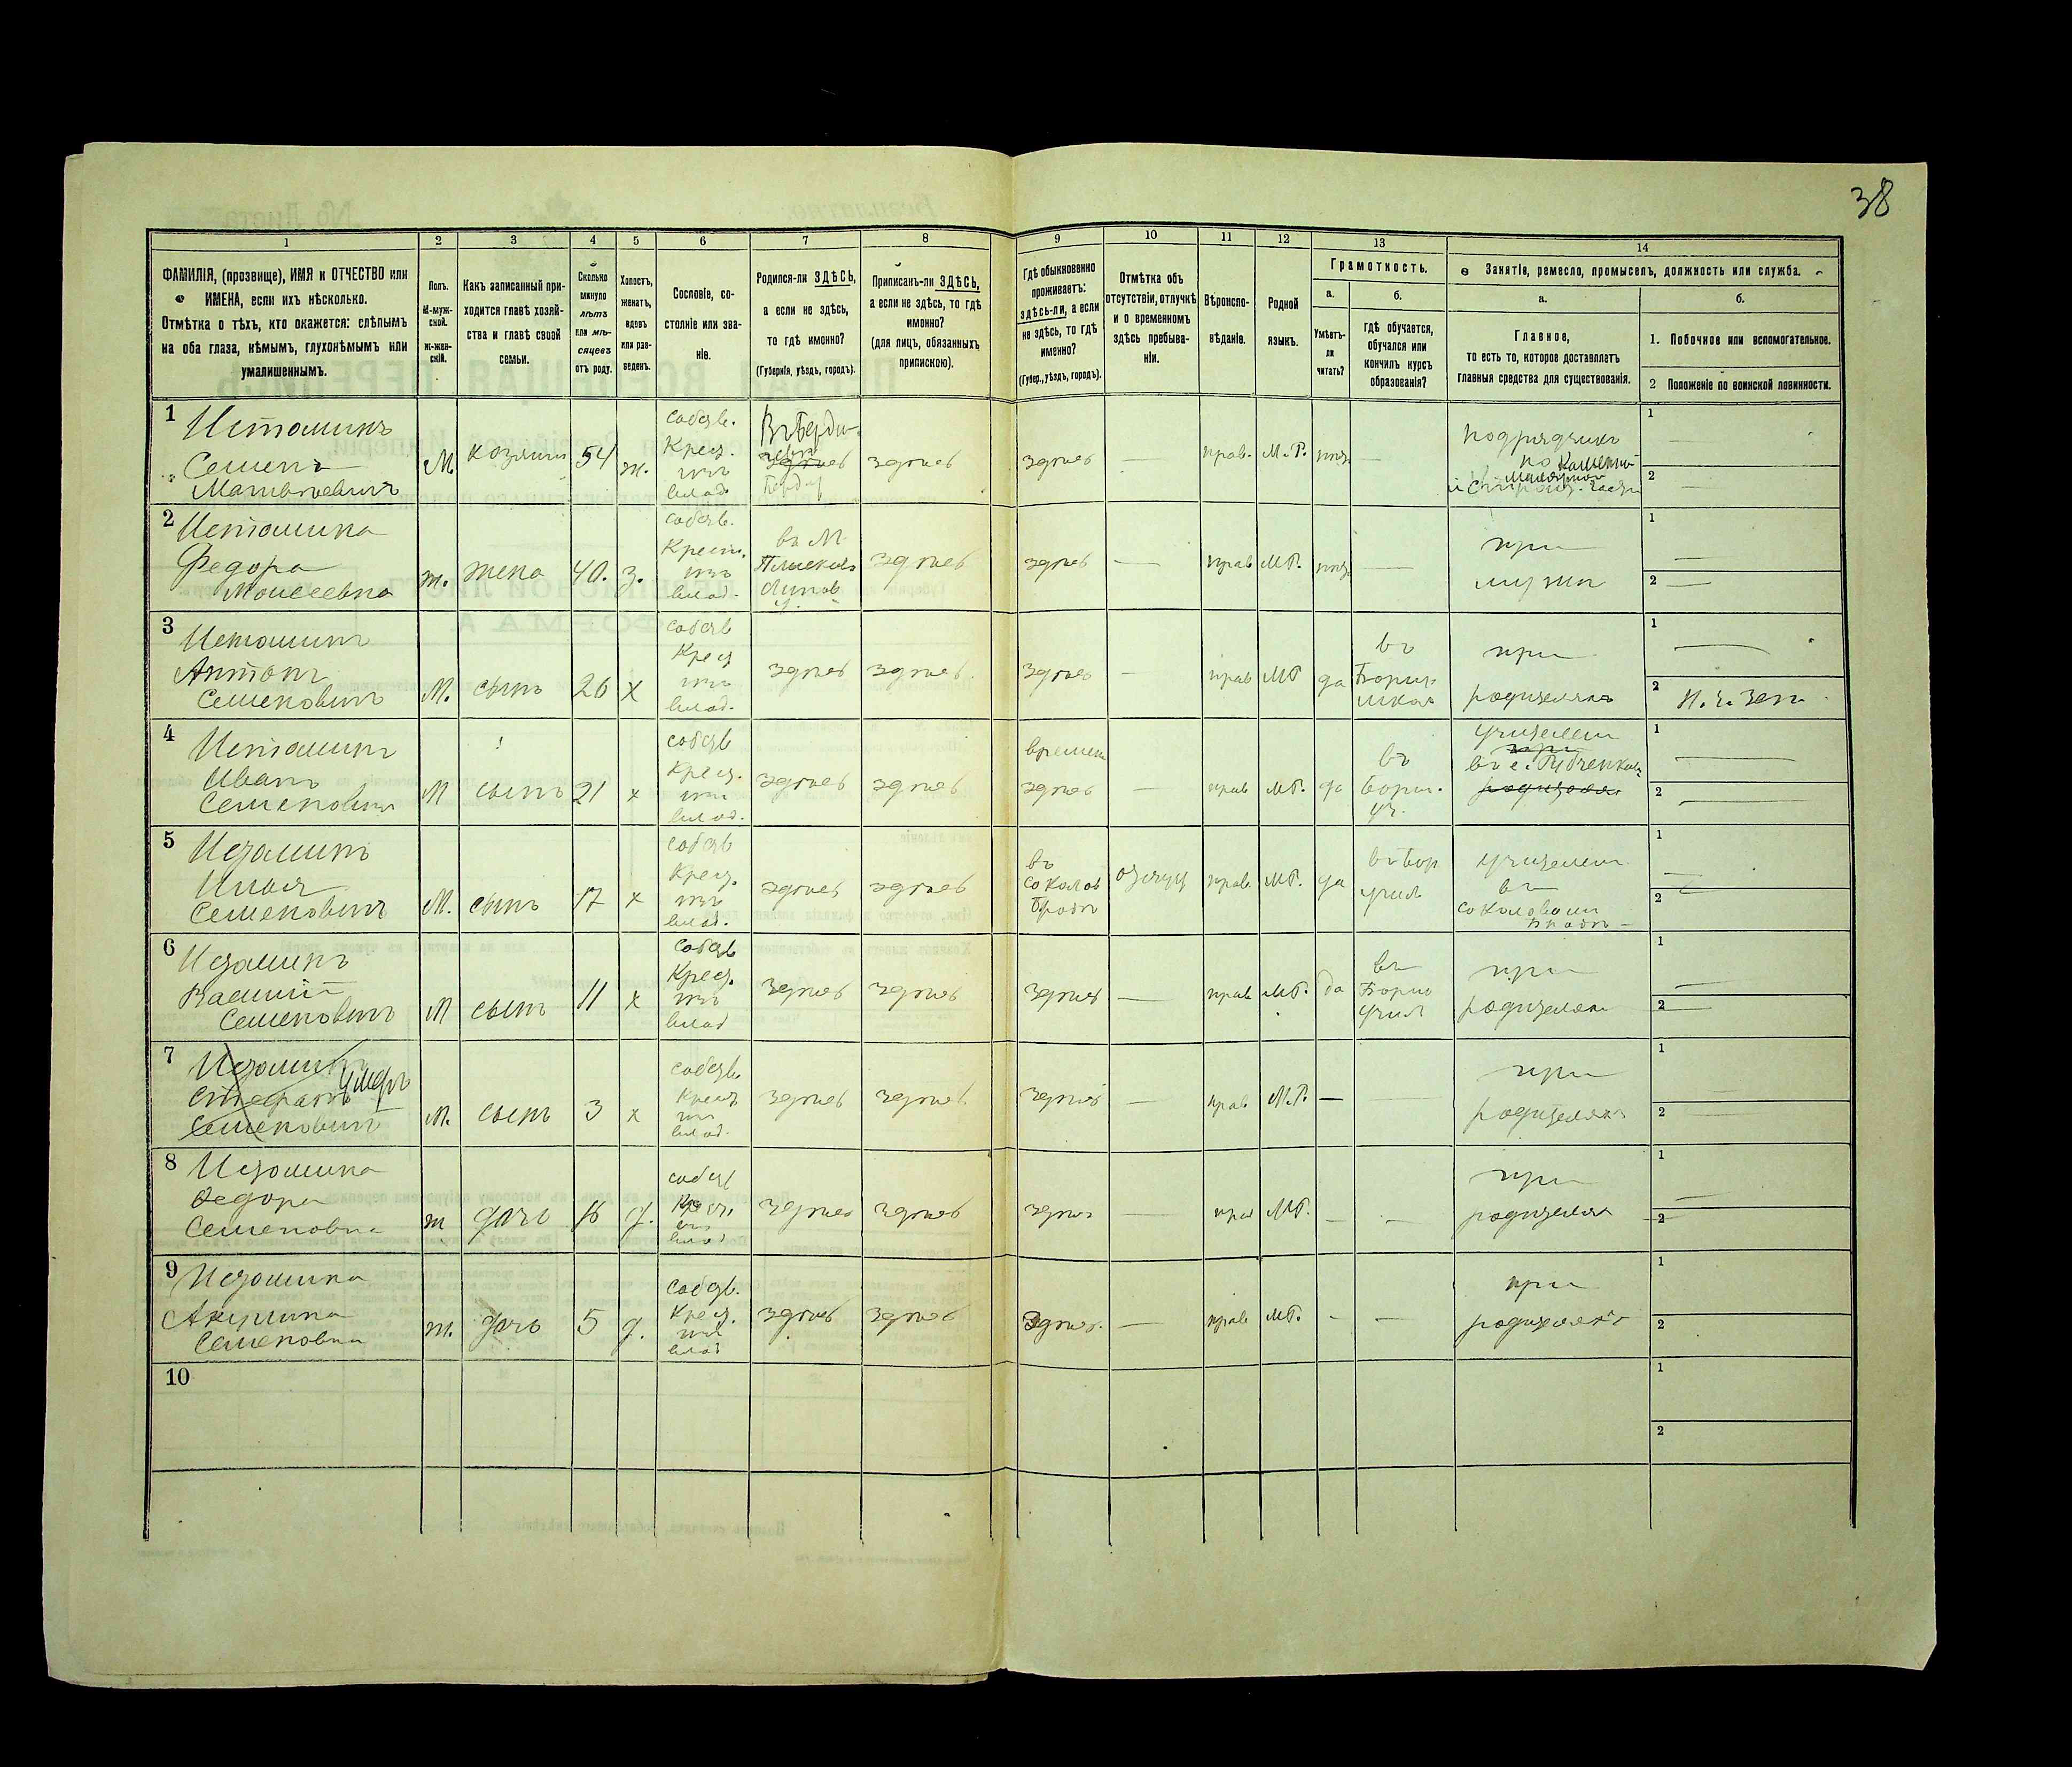 38
1
2
3
4
5
6
7
8
9
10
11
12
13
14
ФАМИЛІЯ, (прозвище), ИМЯ и ОТЧЕСТВО или
ИМЕНА, если ихъ нѣсколько.
Отмѣтка о тѣхъ, кто окажется: слѣпымъ
на оба глаза, нѣмымъ, глухонѣмымъ или
умалишеннымъ.
Полъ.
М-муж-
ской.
Ж-жен-
скій.
Какъ записанный при-
ходится главѣ хозяй-
ства и главѣ своей
семьи.
Сколько
минуло
лѣтъ
или мѣ-
сяцевъ
отъ роду.
Холостъ,
женатъ,
вдовъ
или раз-
веденъ.
Сословіе, со-
стояніе или зва-
ніе.
Родился-ли ЗДѢСЬ,
а если не здѣсь,
то гдѣ именно?
(Губернія, уѣздъ, городъ).
Приписанъ-ли ЗДѢСЬ,
а если не здѣсь, то гдѣ
именно?
(для лицъ, обязанныхъ
припискою).
Гдѣ обыкновенно
проживаетъ:
здѣсь-ли, а если
не здѣсь, то гдѣ
именно?
(Губер., уѣздъ, городъ).
Отмѣтка объ
отсутствіи, отлучкѣ
и о временномъ
здѣсь пребыва-
ніи.
Вѣроиспо-
вѣданіе.
Родной
языкъ.
Грамотность.
а.
Умѣетъ-
ли
читать?
б.
гдѣ обучается,
обучался или
кончилъ курсъ
образованія?
Занятіе, ремесло, промыселъ, должность или служба.
а.
Главное,
то есть то, которое доставляетъ
главныя средства для существованія.
б.
1. Побочное или вспомогательное.
2 Положеніе по воинской повинности.
1 Истоминъ
Семенъ
Матвѣевичъ
М.
хозяинъ
54
ж.
собств.
Крест.
изъ
влад.
здѣсь
здѣсь
—
прав.
М.Р.
—
подрядчикъ
по
1
2
2 Истомина
Федора
Моисеевна
ж.
жена
40.
з.
собств.
Крест.
изъ
влад.
въ М.
здѣсь
здѣсь
—
прав
МР.
—
при
мужи
1
2
3 Истоминъ
Антонъ
Семеновичъ
М.
сынъ
26
х
собств
Крест
изъ
влад.
здѣсь
здѣсь
здѣсь
—
прав
МР
да
въ
школ
при
родителяхъ
1
2
4 Истоминъ
Иванъ
Семеновичъ
М
сынъ
21
х
собств
Крест.
изъ
влад.
здѣсь
здѣсь
времен
здѣсь
—
прав
МР.
да
въ
Борщ.
уч.
учителем
при
родителях
1
2
5 Истоминъ
Илья
Семеновичъ
М.
сынъ
17
х
собств
Крест.
изъ
влад.
здѣсь
здѣсь
въ
Соколов
Бродъ
отлуч
прав.
МР.
да
училъ
учителем
въ
1
2
6 Истоминъ
Василій
Семеновичъ
М
сынъ
11
х
собств
Крест.
изъ
влад
здѣсь
здѣсь
здѣсь
—
прав
МР.
да
въ
учил
при
родителях
1
2
7 Истоминъ
Умеръ
Стефанъ
Семеновичъ
М.
сынъ
3
х
собств.
Крест
изъ
влад.
здѣсь
здѣсь
здѣсь
—
прав
М.Р.
—
при
родителяхъ
1
2
8 Истомина
Федора
Семеновна
ж
дочь
16
д.
собств
Крест.
изъ
влад
здѣсь
здѣсь
здѣсь
—
прав
МР.
—
при
родителях
1
2
9 Истомина
Акулина
Семеновна
ж.
дочь
5
д.
собств.
Крест.
изъ
влад
здѣсь
здѣсь
здѣсь.
—
прав
МР.
-
—
при
родителяхъ
1
2
10
1
2